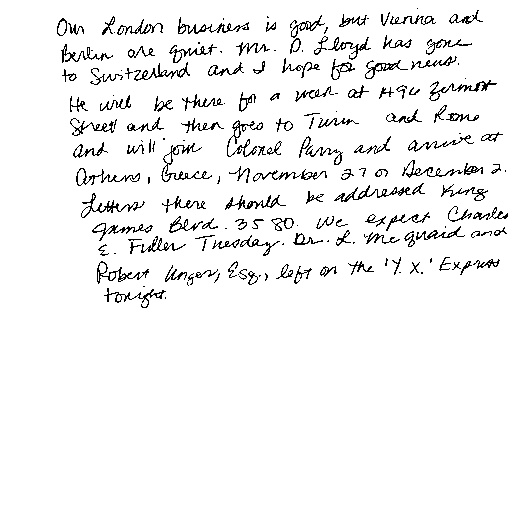 Our London business is good, but Vienna and
Berlin are quiet. Mr. D. Lloyd has gone
to Switzerland and I hope for good news.
He will be there for a week at 1496 Zermott
Street and then goes to Turin and Rome
and will join Colonel Parry and arrive at
Athens, Greece, November 27 or December 2.
Letters there should be addressed King
James Blvd. 3580. We expect Charles
E. Fuller Tuesday. Dr. L. McQuaid and
Robert Unger, Esq., left on the 'Y. X.' Express
tonight.